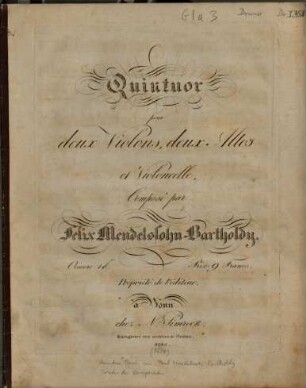 Gla 3
Quintuor
pour
deux Violons, deux Altos
et Violoncelle,
Composé par
Felix Mendelssohn-Bartholdy.
Oeuvre 18. Prix 9 Francs.
Propriété de l'éditeur.
à Bonn
chez N. Simrock.